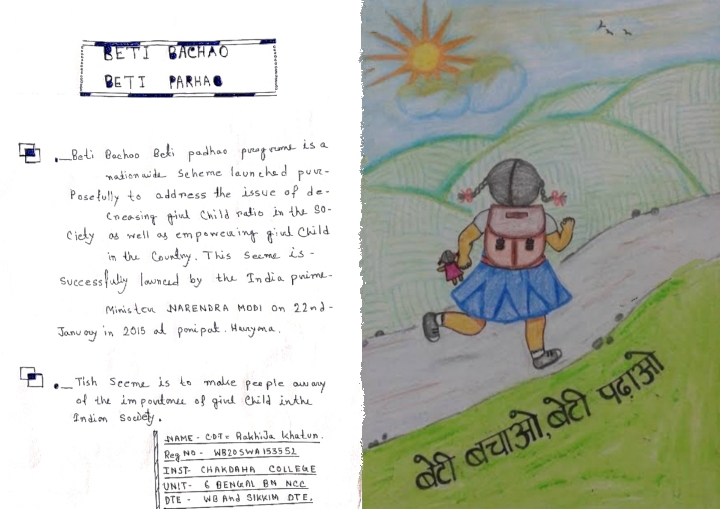 BETI BACHAO
BETI PARHAO
Beti Bachao Beti padhao programe is a
nationwide Scheme launched puur-
Posefully to address the issue of de-
Creasing girl Child ratio in the SO-
Ciety as well as empowering girl Child
in the Country. This Seeme is -
Successfully launced by the India prime-
Minister NARENDRA MODI on 22nd-
January in 2015 at panipat. Haryana.
Tish Seeme is to make people awary
of the importance of girl Child inthe
Indian Society.
NAME - CDT= Rakhija Khatun.
Reg No - WB20SWA153551
INST- CHAKDAHA COLLEGE
UNIT- 6 BENGAL BN NCC
DTE - WB And SIKKIM DTE.
बेटी बचाओ, बेटी पढाओ